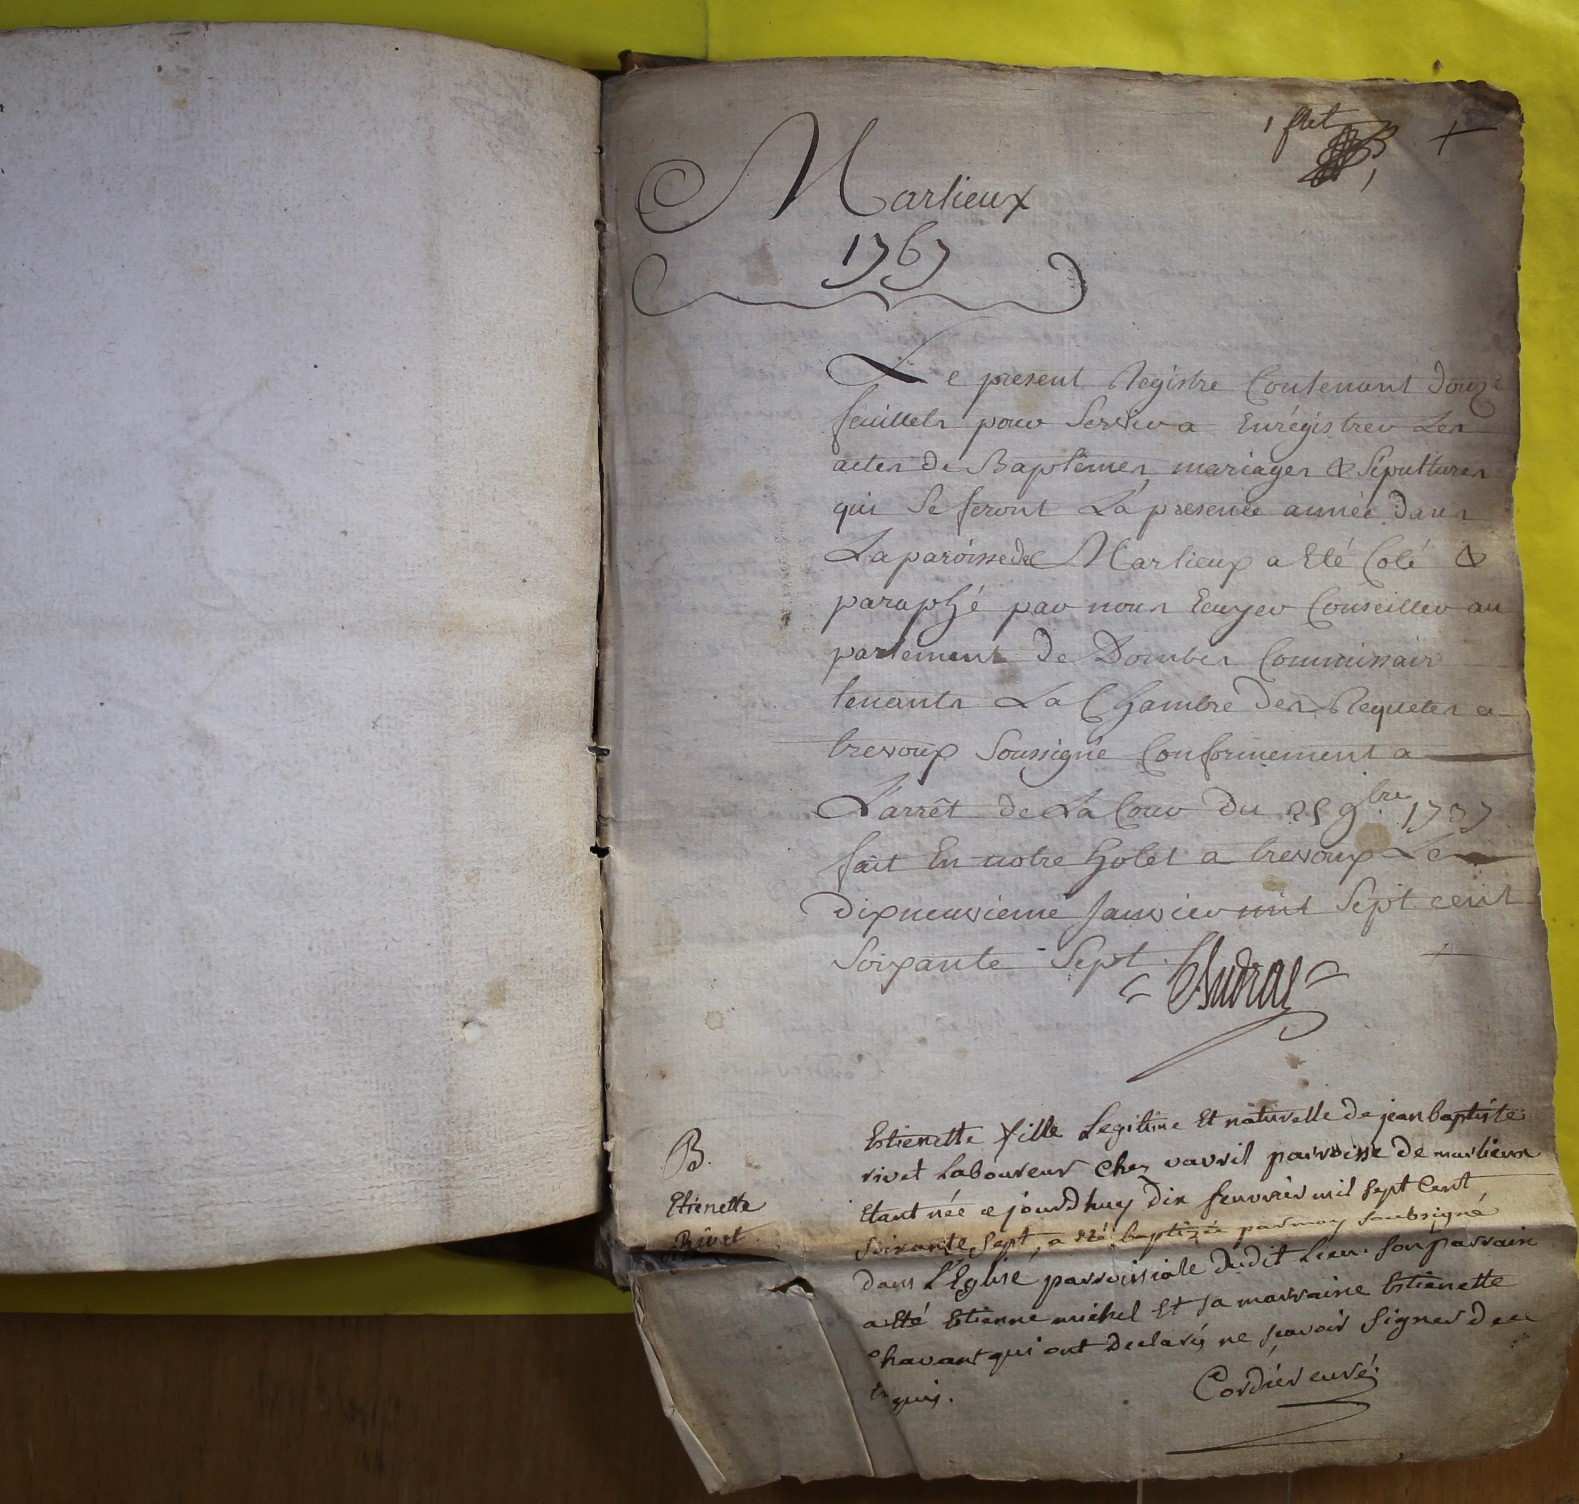 1 flet
Marlieux
1767
Le present Registre Contenant douze
feuillets pour Servir a Enrégistrer Les
actes de Baptêmes, mariages & Sepultures
qui Se feront La presente année dans
La paroisse de Marlieux a Eté Coté &
paraphé par nous Ecuyer Conseiller au
parlement de Dombes Commissair
tenants La Chambre des Requetes a
trevoux Soussigné Conformement a
L'arrêt de La Cour du 25 9bre 1737
fait En notre hotel a trevoux Le
dixneuvieme Janvier mil Sept cent
Soixante Sept.
B.
Etienette
Rivet
Estienette fille Legitime Et naturelle de jean baptiste
rivet Laboureur Chez vavril parroisse de marlieux
Etant née ce jourdhuy dix feuvrier mil sept Cent
Soixante Sept, a été baptizée par moy Soubsigné
dans L'Eglise parroissiale dudit Lieu. Son parrain
a Eté Estienne michel Et sa marraine Estienette
chavant qui ont declaré ne sçavoir Signer de ce
Enquis.
Cordier curé